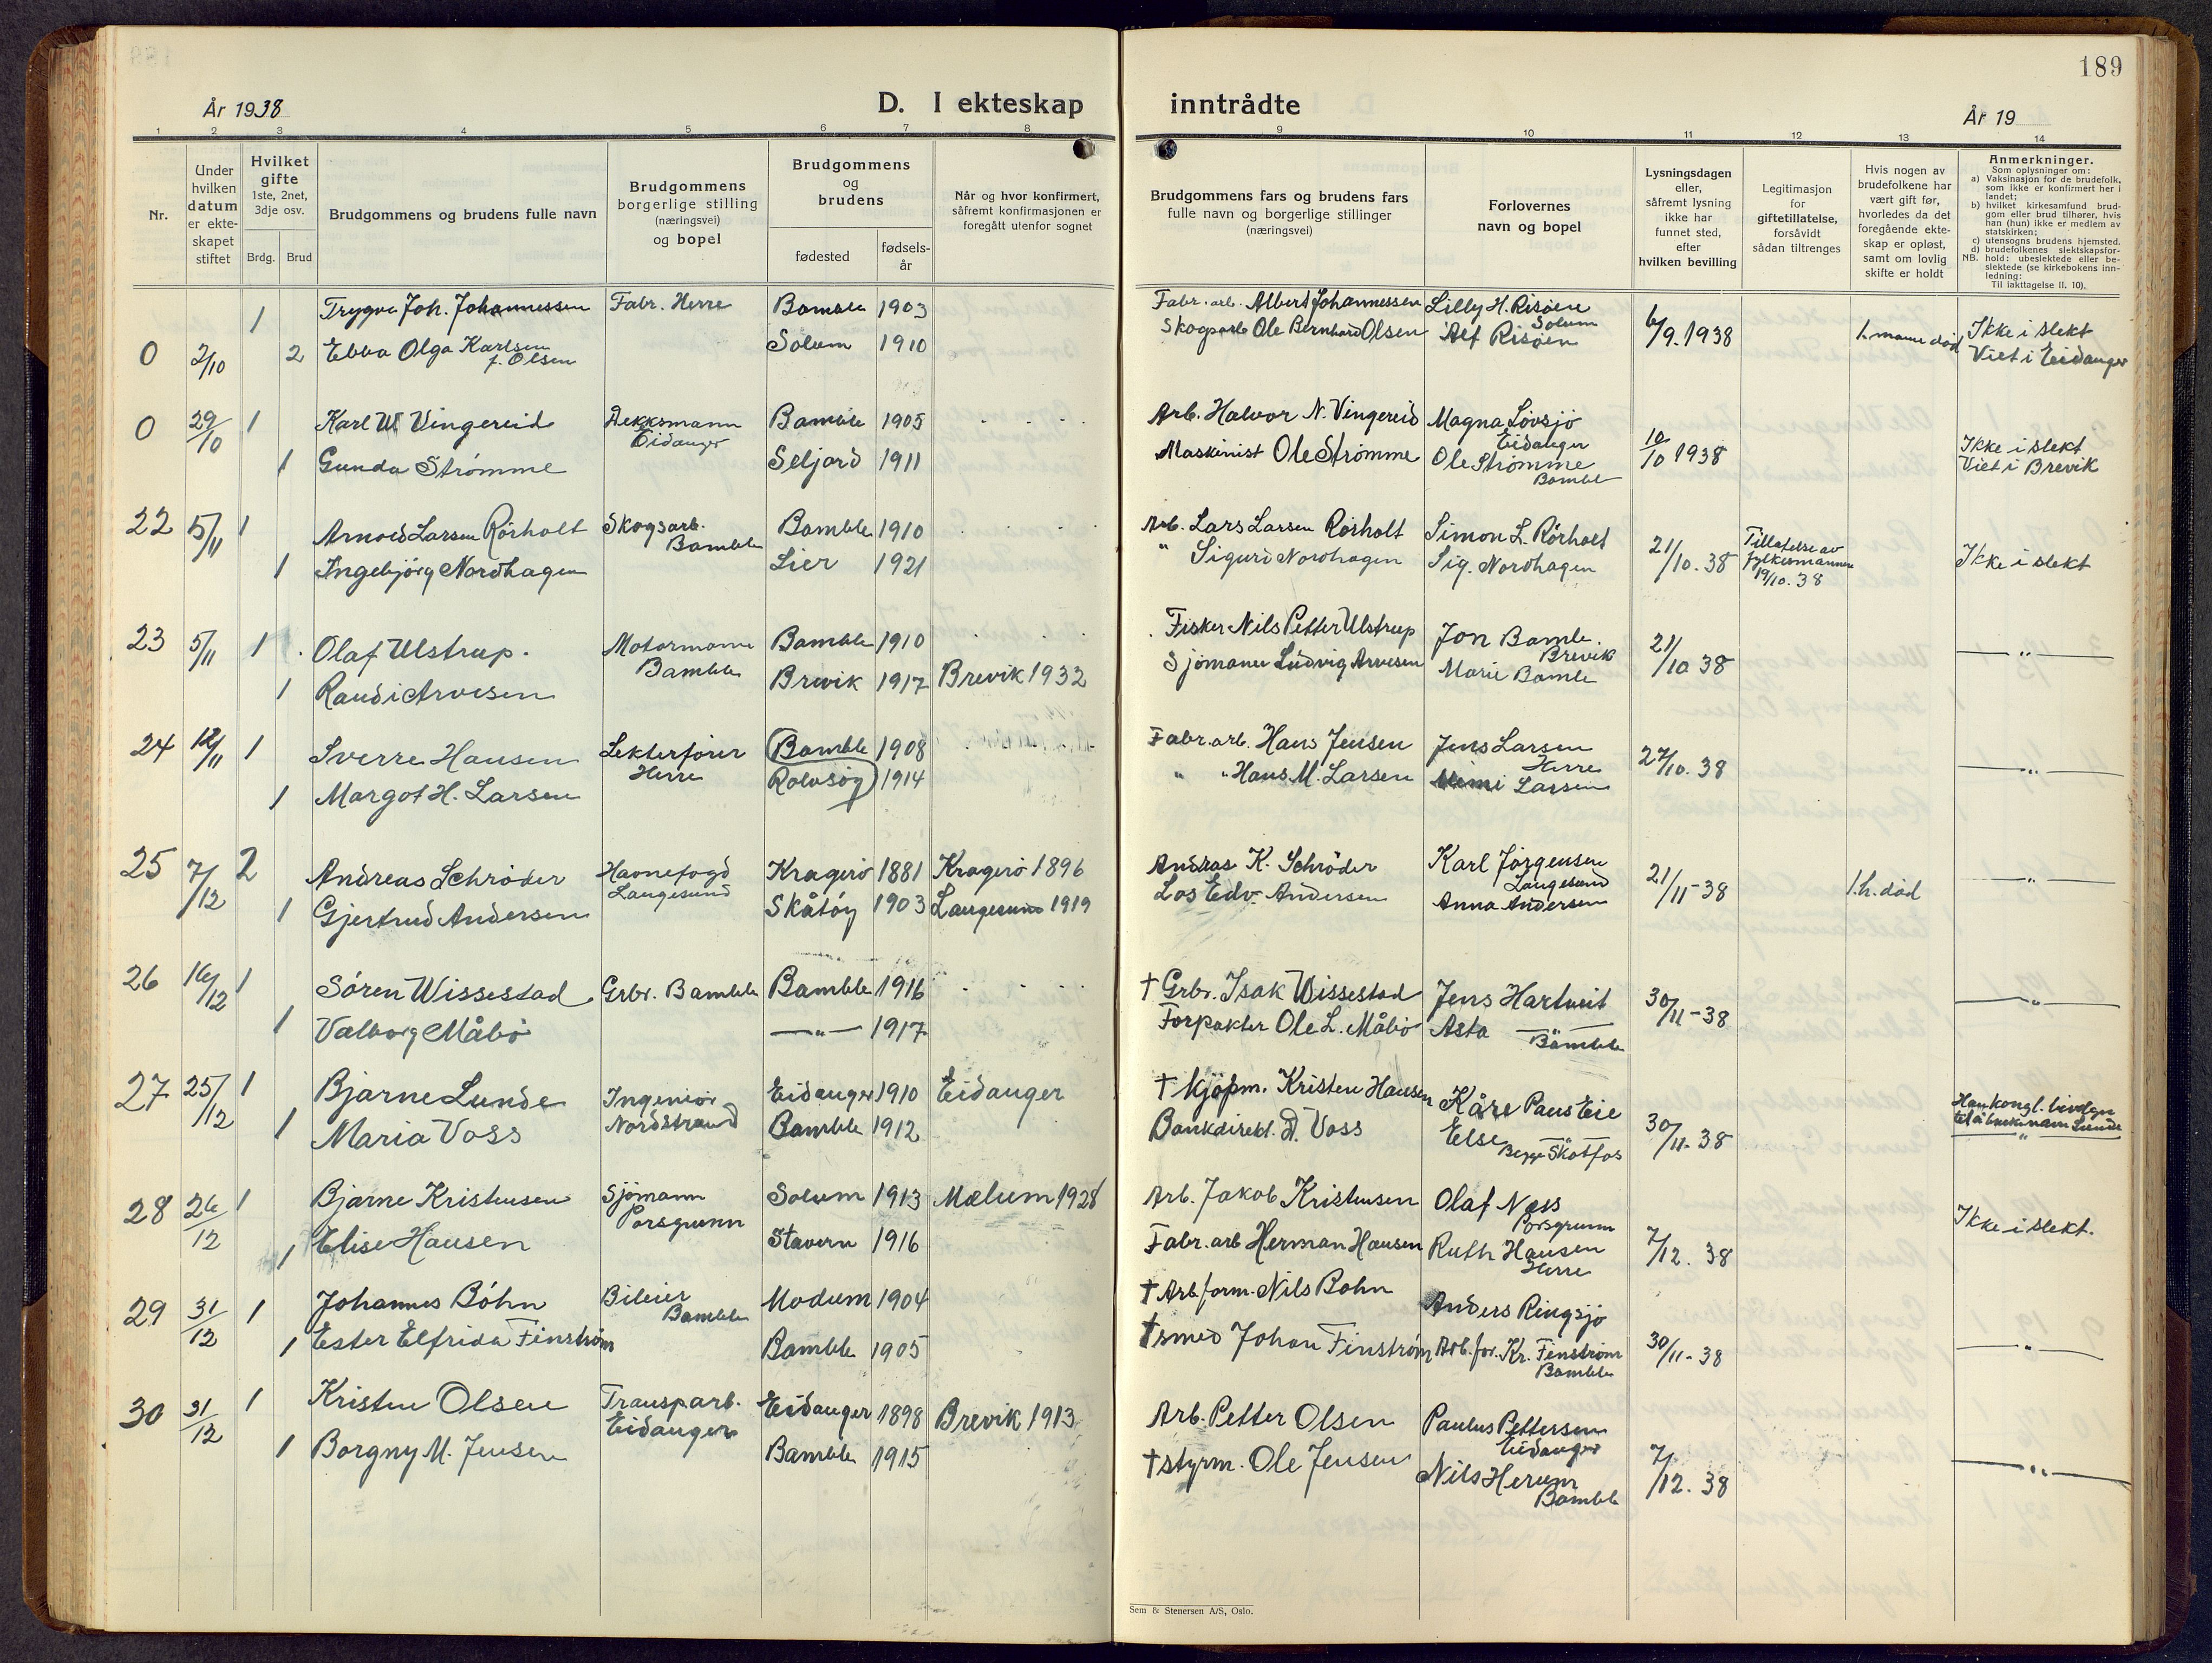 189
År 1938
D. I ekteskap inntrådte
År 19
1 2 3 4 5 6 7 8 9 10 11 12 13 14
Nr.
Under hvilken datum er ekteskapet stiftet
Hvilket gifte 1ste, 2net, 3dje osv.
Brdg. Brud
Brudgommens og brudens fulle navn
Brudgommens borgerlige stilling (næringsvei) og bopel
Brudgommens og brudens
fødested
fødsels-
år
Når og hvor konfirmert,
såfremt konfirmasjonen er
foregått utenfor sognet
Brudgommens fars og brudens fars
fulle navn og borgerlige stillinger
(næringsvei)
Forlovernes
navn og bopel
Lysningsdagen
eller,
såfremt lysning
ikke har
funnet sted,
efter
hvilken bevilling
Legitimasjon
for
giftetillatelse,
forsåvidt
sådan tiltrenges
Hvis nogen av
brudefolkene har
vært gift før,
hvorledes da det
foregående ekte-
skap er opløst,
samt om lovlig
skifte er holdt
Anmerkninger.
Som oplysninger om:
a) Vaksinasjon for de brudefolk,
som ikke er konfirmert her i
landet;
b) hvilket kirkesamfund brud-
gom eller brud tilhører, hvis
han (hun) ikke er medlem av
statskirken;
c) utensogns brudens hjemsted.
d) brudefolkenes slektskapsfor-
NB. hold: ubeslektede eller be-
slektede (se kirkebokens inn-
ledning:
Til iakttagelse II. 10).
1 Trygve Joh. Johannessen Fabr. Herre Bamble 1903 Fabr. arb. Albert Johannessen Lilly H. Risøen
0 2/10 2 Ebba Olga Karlsen f. Olsen Solum 1910 Skogsarb Ole Bernhard Olsen Alf Risøen Solum 6/9. 1938 1. mann død Ikke i slekt Viet i Eidanger
0 29/10 1 Karl W Vingereid Dekksmann Eidanger Bamble 1905 Arb. Halvor N. Vingereid Magna Løvsjø Eidanger
1 Gunda Strømme Seljord 1911 Maskinist Ole Strømme Ole Strømme Bamble 10/10 1938 Ikke i slekt Viet i Brevik
22 5/11 1 Arnold Larsen Rørholt Skogsarb. Bamble Bamble 1910 Arb. Lars Larsen Rørholt Simon L. Rørholt
1 Ingebjørg Nordhagen Lier 1921 " Sigurd Nordhagen Sig. Nordhagen 21/10. 38 Tillatelse av fylkesmannen 19/10. 38 Ikke i slekt
23 5/11 1 Olaf Ulstrup. Motormann Bamble Bamble 1910 Fisker Nils Petter Ulstrup Jon Bamle. Brevik
1 Randi Arvesen Brevik 1917 Brevik 1932 Sjömann Ludvig Arvesen Marie Bamle 21/10 38 — " —
24 12/11 1 Sverre Hansen Lekterfører Herre Bamble 1908 Fabr. arb. Hans Jensen Jens Larsen Herre
1 Margot H. Larsen Rolvsøy 1914 " " Hans M. Larsen Mimi Larsen 27/10. 38 — " —
25 7/12 2 Andreas Schrøder Havnefogd Langesund Kragerø 1881 Kragerø 1896 Andreas K. Schrøder Karl Jørgensen Langesund
1 Gjertrud Andersen Skåtøy 1903 Langesund 1919 Los Edv. Andersen Anna Andersen 21/11-38 1. h. død — " —
26 16/12 1 Søren Wissestad Grbr. Bamble Bamble 1916 † Grbr. Isak Wissestad Jens Hartveit
1 Valborg Måbø — " — 1917 Forpakter Ole L. Måbø Asta — " — Bamble 30/11-38 — " —
27 25/12 1 Bjarne Lunde Ingeniør Nordstrand Eidanger 1910 Eidanger † Kjøpm. Kristen Hansen Kåre Paus Eie
1 Maria Voss Bamble 1912 Bankdirekt. D. Voss Else — " — Begge Skotfos 30/11-38 Han kongl. bevilgn til å bruke navn Lunde — " —
28 26/12 1 Bjarne Kristensen Sjömann Porsgrunn Solum 1913 Mælum 1928 Arb. Jakob Kristensen Olaf Næss Porsgrunn
1 Elise Hansen Stavern 1916 Fabr. arb Herman Hansen Ruth Hansen Herre 7/12. 38 Ikke i slekt.
29 31/12 1 Johannes Bøhn Bileier Bamble Modum 1904 † Arb. form. Nils Bøhn Anders Ringsjø
1 Ester Elfrida Finstrøm Bamble 1905 † smed Johan Finstrøm Arb. for. Kr. Finstrøm Bamble 30/11-38 — " —
30 31/12 1 Kristen Olsen Transparb. Eidanger Eidanger 1898 Brevik 1913 Arb. Petter Olsen Paulus Pettersen Eidanger
1 Borgny M. Jensen Bamble 1915 † styrm. Ole Jensen Nils Herum Bamble 7/12. 38 — " —
Sem & Stenersen A/S, Oslo.